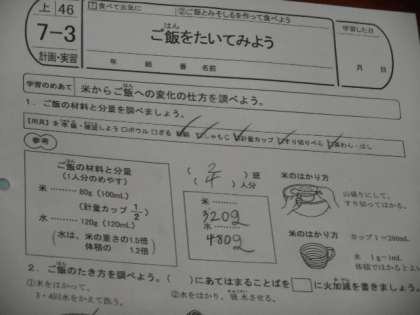 上 46
7-3
計画・実習
食べて元気に ②ご飯とみそしるを作って食べよう
ご飯をたいてみよう
年 組 番 名前
学習した日
月 日
学習のめあて 米からご飯への変化の仕方を調べよう。
1. ご飯の材料と分量を調べましょう。
参考
ご飯の材料と分量
(1人分のめやす)
米 ……… 80g (100mL)
(計量カップ 1/2)
水 ……… 120g (120mL)
(水は、米の重さの1.5倍
体積の 1.2倍)
( 2 ) 班
( 4 ) 人分
米 ………
320g
水 ………
480g
米のはかり方
山盛りにして、
すり切ってはかる。
米のはかり方
カップ1=200mL
水 1g=1mL
体積ではかるとよい
2. ご飯のたき方を調べよう。( )にあてはまることばを□に火加減を書きましょう。
①米をはかって、
3・4回水をかえて洗う。
②水をはかり、吸水させる。